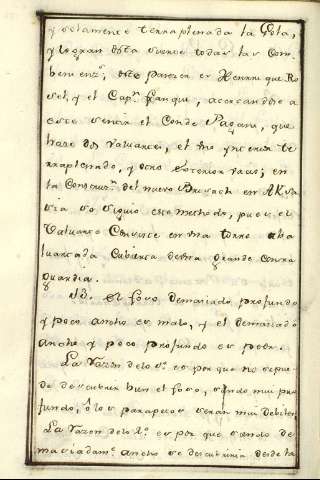 y solamente terraplenada la Gola,
y logran desta suerte todas las Com
benienz.s, este parecer es Henrrique Ro
set, y el Cap.n Franque, acercandose a
este sentir el Conde Pagano, que
hase dos valuartes, el uno ynterior te
rraplenado, y otro exterior vacio; en
la Construz.n del nuevo Brisach en Alsa
cia so siguio este methodo, pues el
Valuarte Consiste en una torre aba
luartada Cubierta de una grande contra
guardia.
13. El foso demaciado profundo
y poco ancho es malo, y el demaciado
ancho y poco profundo es peor.
La razon delo 1.o es por que no se pue
de descubrir bien el foso, siendo mui pro
fundo, o los parapetos seran mui debiles
La razon delo 2.o es por que siendo de
maciadam.te ancho se descubriria desde la